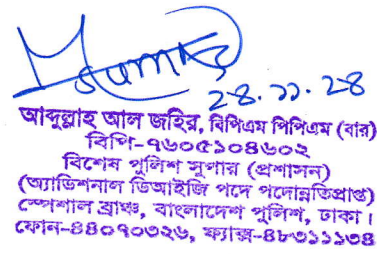 ২৪.১১.২৪
আব্দুল্লাহ আল জহির, বিপিএম পিপিএম (বার)
বিপি-৭৬০৫১০৪৬০২
বিশেষ পুলিশ সুপার (প্রশাসন)
(অ্যাডিশনাল ডিআইজি পদে পদোন্নতিপ্রাপ্ত)
স্পেশাল ব্রাঞ্চ, বাংলাদেশ পুলিশ, ঢাকা।
ফোন-৪৪০৭০৩২৬, ফ্যাক্স-৪৮৩১১১৩৪